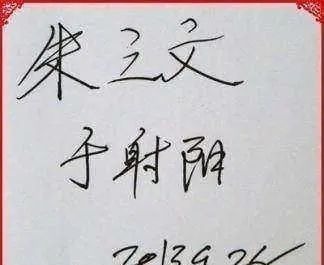 朱立文
于射阳
2013.9.26